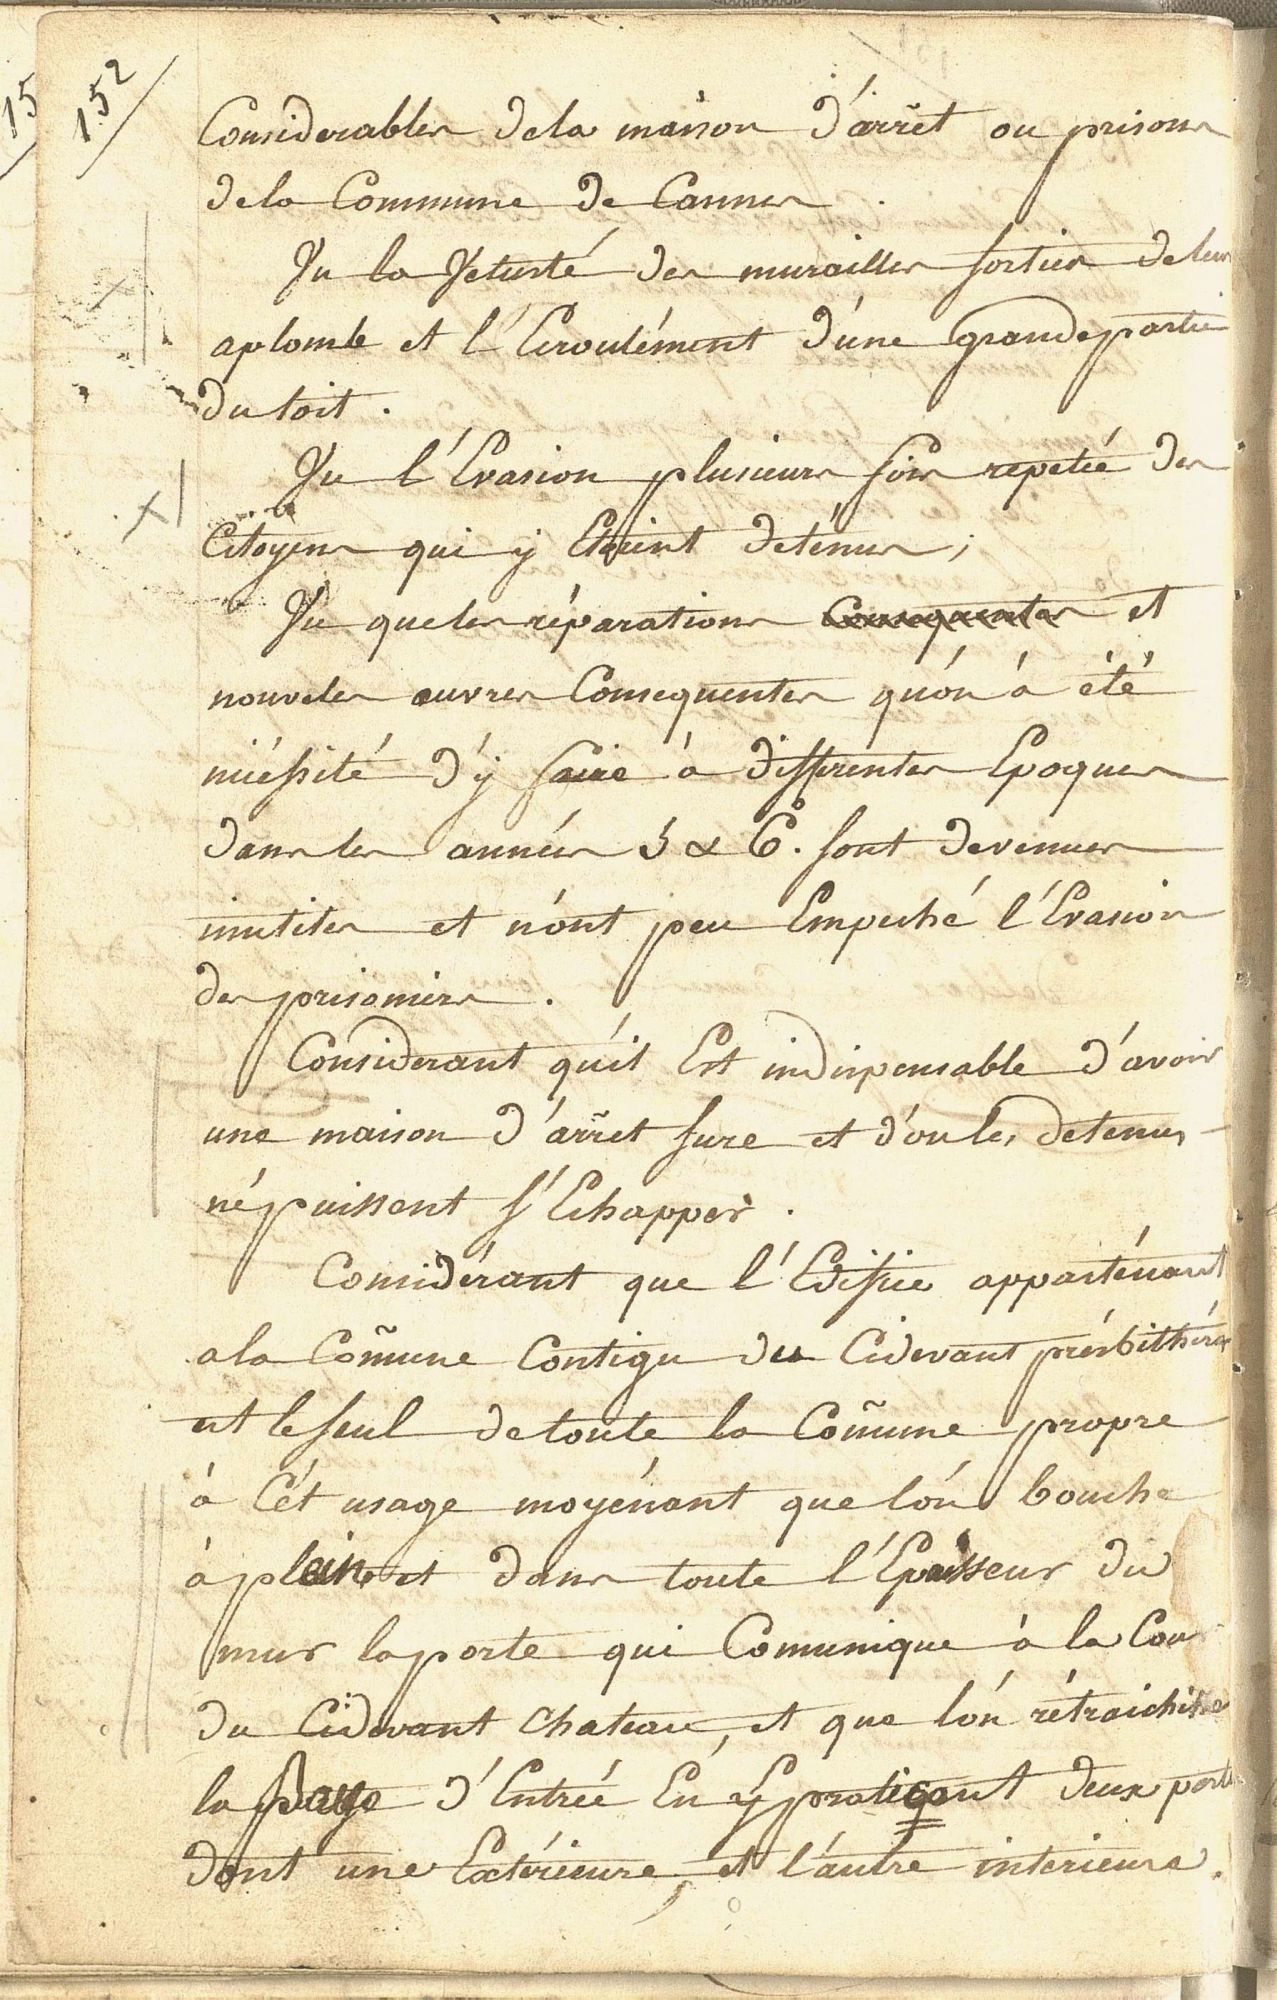 152
Considerables dela maison d'arrêt ou prisons
dela Commune de Cannes.
Vu la Vetusté des murailles sorties de leur
aplomb et l'Ecroulément d'une grande partie
du toit.
Vu l'Evasion plusieurs fois repetée des
Citoyens qui y Etoint deténus;
Vu que les réparations Consequentes et
nouveles œuvres Consequentes qu'on à été
niéssité d'y faire à differentes Epoques
dans les années 5 & 6. sont devenues
inutiles et n'ont peu Empeché l'Evasion
des prisoniers.
Considerant qu'il Est indispensable d'avoir
une maison d'arrêt sure et d'ou les detenus
né puissent s'Echapper.
Considérant que l'Edifice apparténant
a la Com̃une Contigu du Cidevant présbithére
est le seul de toute la Com̃une propre
à Cét usage moyénant que l'ón bouche
à plein et dans toute l'Epaisseur du
mur la porte qui Comunique à la Cour
du Cidevant Chateau, et que l'ón rétraichisse
la d'Entrée En y pratiqant deux portes
dont une Extérieure, et l'autre interieure.